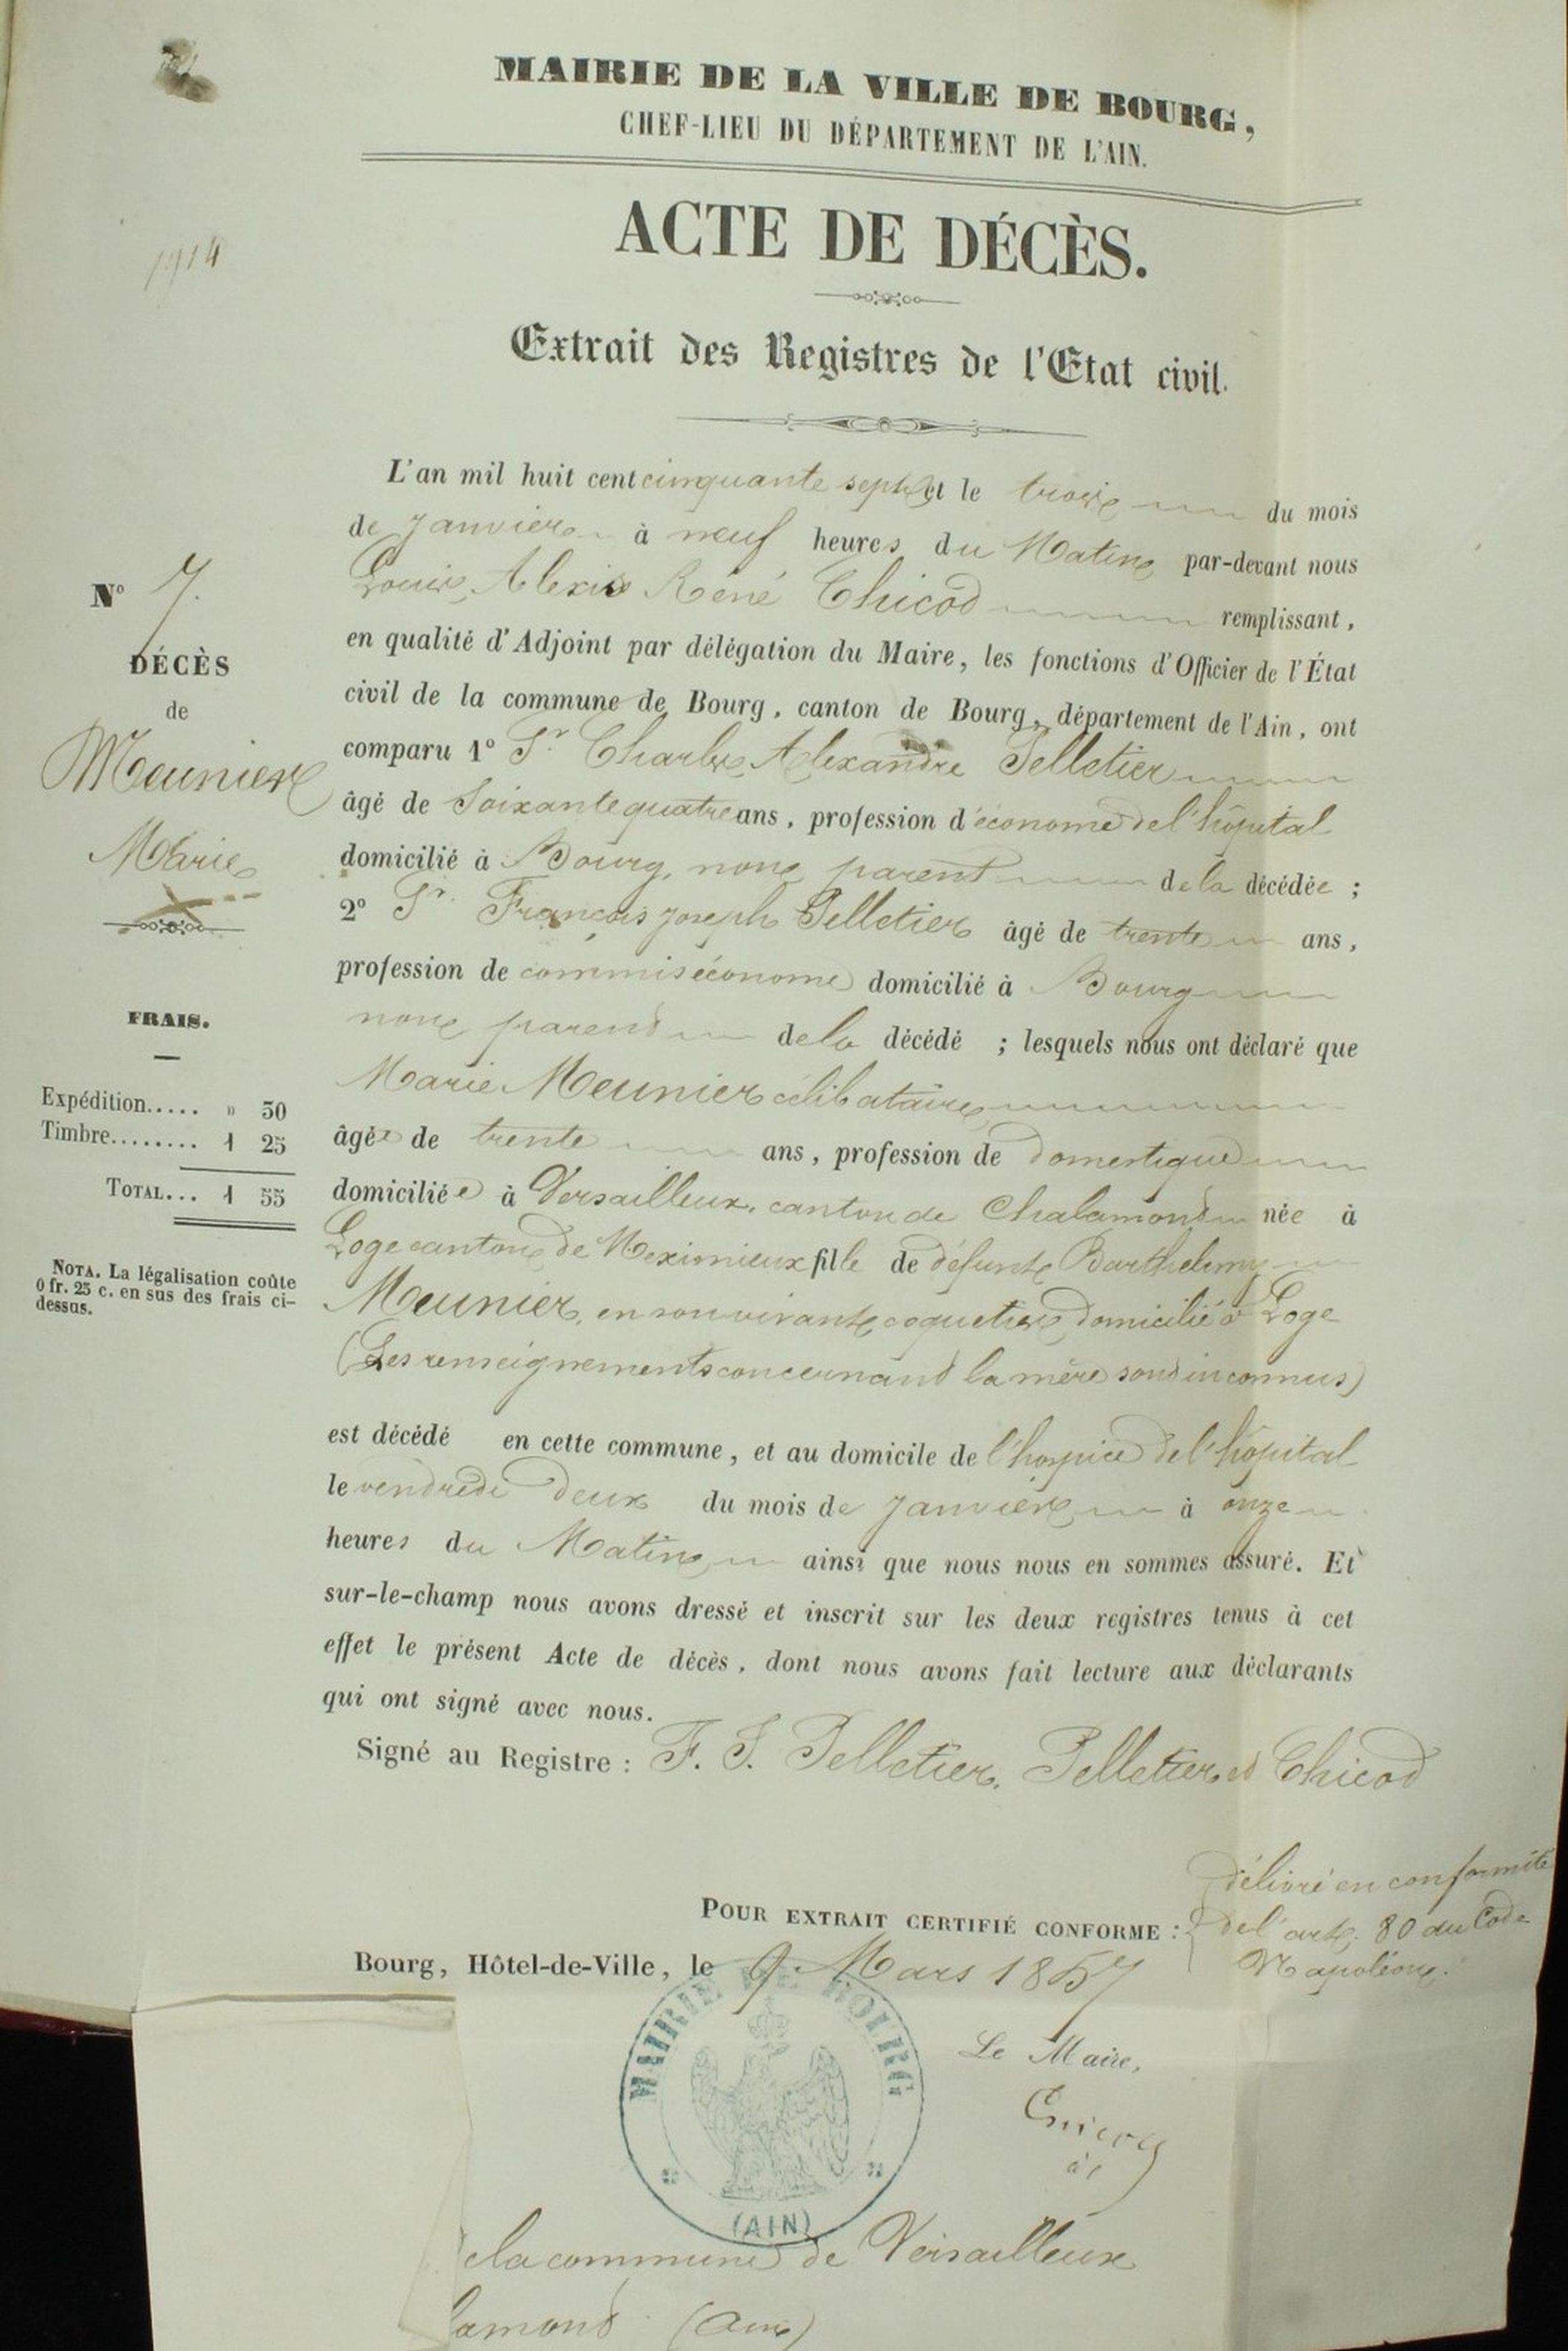 MAIRIE DE LA VILLE DE BOURG,
CHEF-LIEU DU DÉPARTEMENT DE L'AIN.
ACTE DE DÉCÈS.
1914
Extrait des Registres de l'Etat civil.
L'an mil huit cent cinquante sept et le trois du mois
de Janvier à neuf heures du Matin par-devant nous
Louis Alexis Réné Chicod remplissant,
en qualité d'Adjoint par délégation du Maire, les fonctions d'Officier de l'État
civil de la commune de Bourg, canton de Bourg, département de l'Ain, ont
comparu 1° Sr. Charles Alexandre Pelletier
âgé de Soixante quatre ans, profession d'économe de l'hôpital
domicilié à Bourg, non parent de la décédée ;
2° Sr. François Joseph Pelletier âgé de trente ans,
profession de commis économe domicilié à Bourg
non parent de la décédé ; lesquels nous ont déclaré que
Marie Meunier célibataire
âgée de trente ans, profession de domestique
domiciliée à Versailleux, canton de Chalamont née à
Loge canton de Meximieux fille de défunt Barthelemy
Meunier, en son vivant coquetier domicilié à Loge
(Les renseignements concernant la mère sont inconnus)
est décédé en cette commune, et au domicile de l'hospice de l'hôpital
le vendredi deux du mois de Janvier à onze
heures du Matin ainsi que nous nous en sommes assuré. Et
sur-le-champ nous avons dressé et inscrit sur les deux registres tenus à cet
effet le présent Acte de décès, dont nous avons fait lecture aux déclarants
qui ont signé avec nous.
Signé au Registre : F. J. Pelletier, Pelletier et Chicod
N° 7.
DÉCÈS
de
Meunier
Marie
FRAIS.
Expédition..... » 30
Timbre........ 1 25
TOTAL... 1 55
NOTA. La légalisation coûte
0 fr. 25 c. en sus des frais ci-
dessus.
POUR EXTRAIT CERTIFIÉ CONFORME :
délivré en conformité
de l'art. 80 du Code
Napoléon.
Bourg, Hôtel-de-Ville, le 9 Mars 1857
MAIRIE DE BOURG
(AIN)
Le Maire,
Chicod
la commune de Versailleux
lamont (Ain)